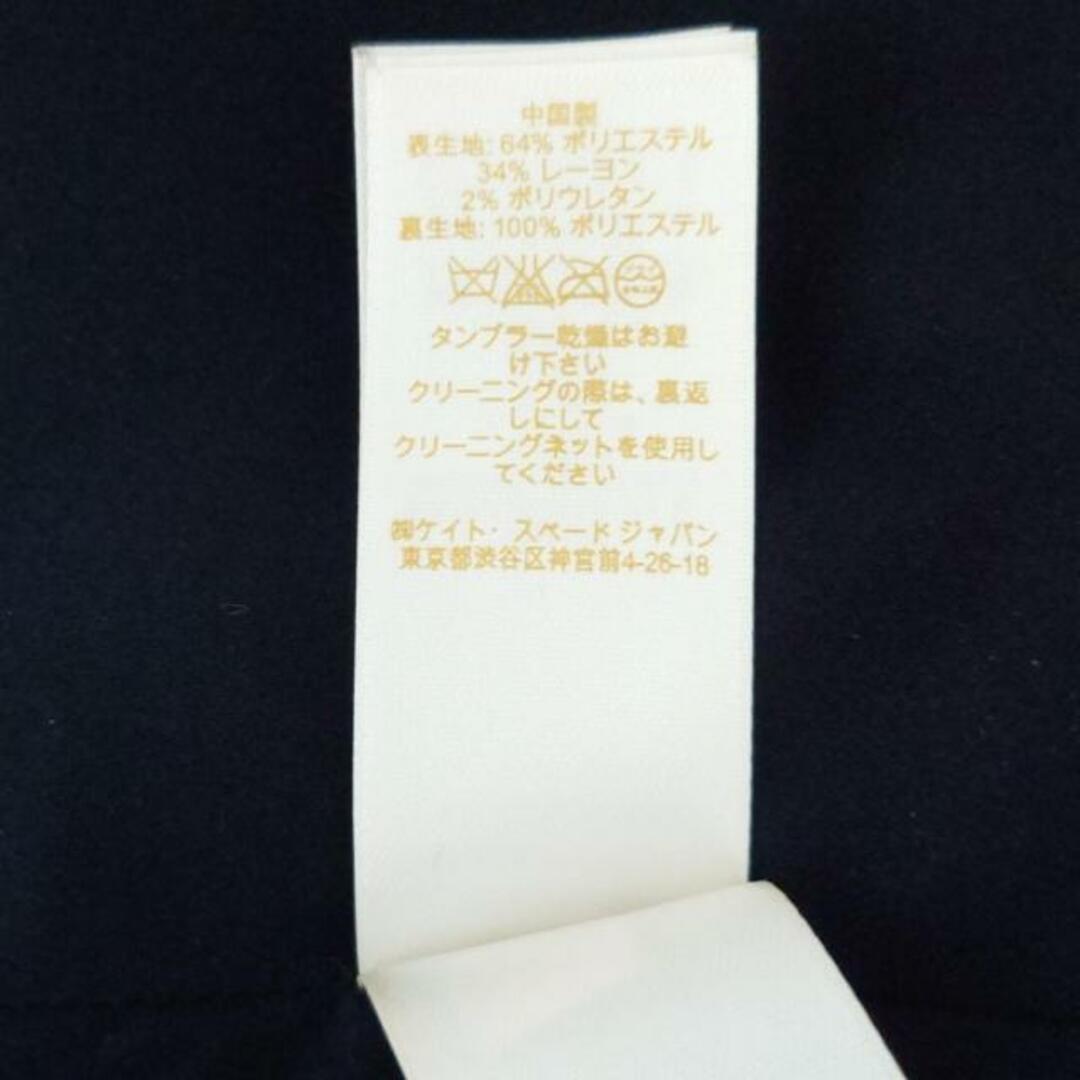 中国製
表生地: 64% ポリエステル
34% レーヨン
2% ポリウレタン
裏生地: 100% ポリエステル
タンブラー乾燥はお避
け下さい
クリーニングの際は、裏返
しにして
クリーニングネットを使用し
てください
㈱ケイト・スペード ジャパン
東京都渋谷区神宮前4-26-18